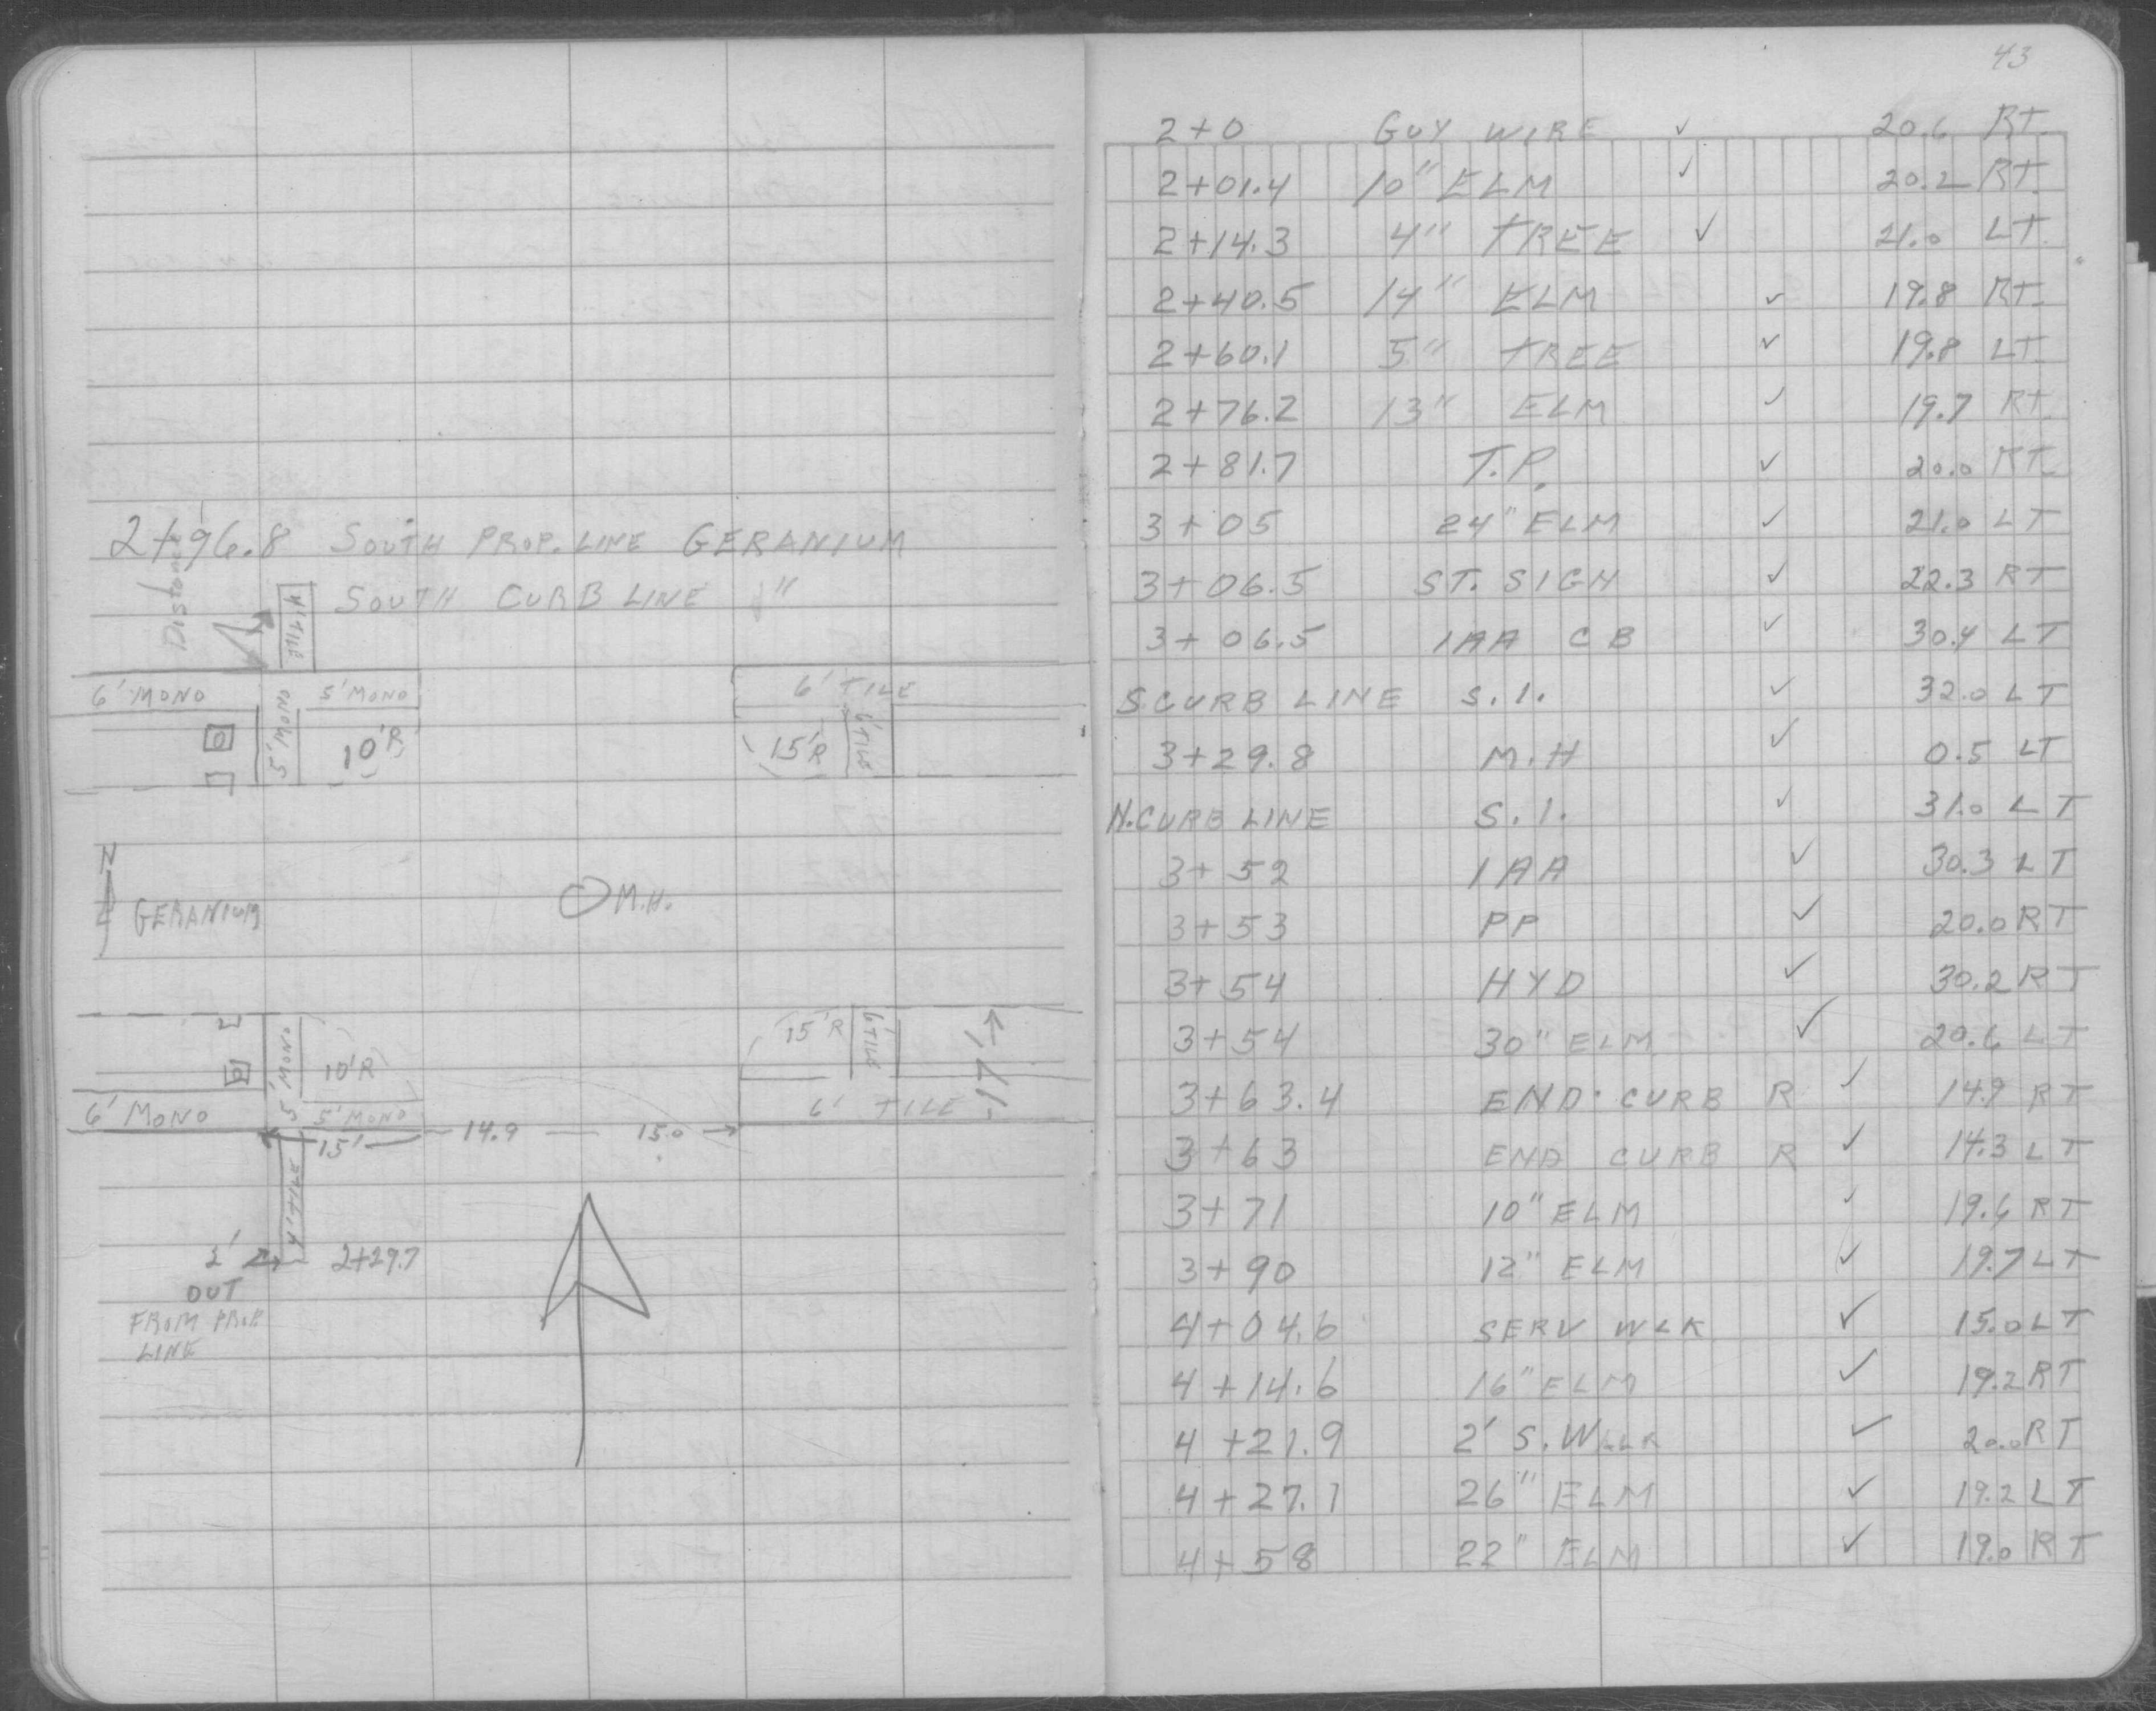 2+96.8 SOUTH PROP. LINE GERANIUM
SOUTH CURB LINE "
Distance
4' TILE
6' MONO
5' MONO
5' MONO
10'R
6' TILE
15'R
6' TILE
N
GERANIUM
M.H.
5' MONO
10'R
15'R
6' TILE
17'
6' MONO
5' MONO
6' TILE
15' 14.9 15.0
4' TILE
2' 2+29.7
OUT
FROM PROP.
LINE
43
2+0 GUY WIRE ✓ 20.6 RT.
2+01.4 10" ELM ✓ 20.2 RT.
2+14.3 4" TREE ✓ 21.0 LT.
2+40.5 14" ELM ✓ 19.8 RT.
2+60.1 5" TREE ✓ 19.8 LT.
2+76.2 13" ELM ✓ 19.7 RT.
2+81.7 T.P. ✓ 20.0 RT.
3+05 24" ELM ✓ 21.0 LT
3+06.5 ST. SIGN ✓ 22.3 RT
3+06.5 1AA CB ✓ 30.4 LT
S.CURB LINE S.I. ✓ 32.0 LT
3+29.8 M.H ✓ 0.5 LT
N.CURB LINE S.I. ✓ 31.0 LT
3+52 1AA ✓ 30.3 LT
3+53 PP ✓ 20.0 RT
3+54 HYD ✓ 30.2 RT
3+54 30" ELM ✓ 20.6 LT
3+63.4 END CURB R ✓ 14.9 RT
3+63 END CURB R ✓ 14.3 LT
3+71 10" ELM ✓ 19.6 RT
3+90 12" ELM ✓ 19.7 LT
4+04.6 SERV WLK ✓ 15.0 LT
4+14.6 16" ELM ✓ 19.2 RT
4+21.9 2' S. WLLK ✓ 20.0 RT
4+27.1 26" ELM ✓ 19.2 LT
4+58 22" ELM ✓ 19.0 RT